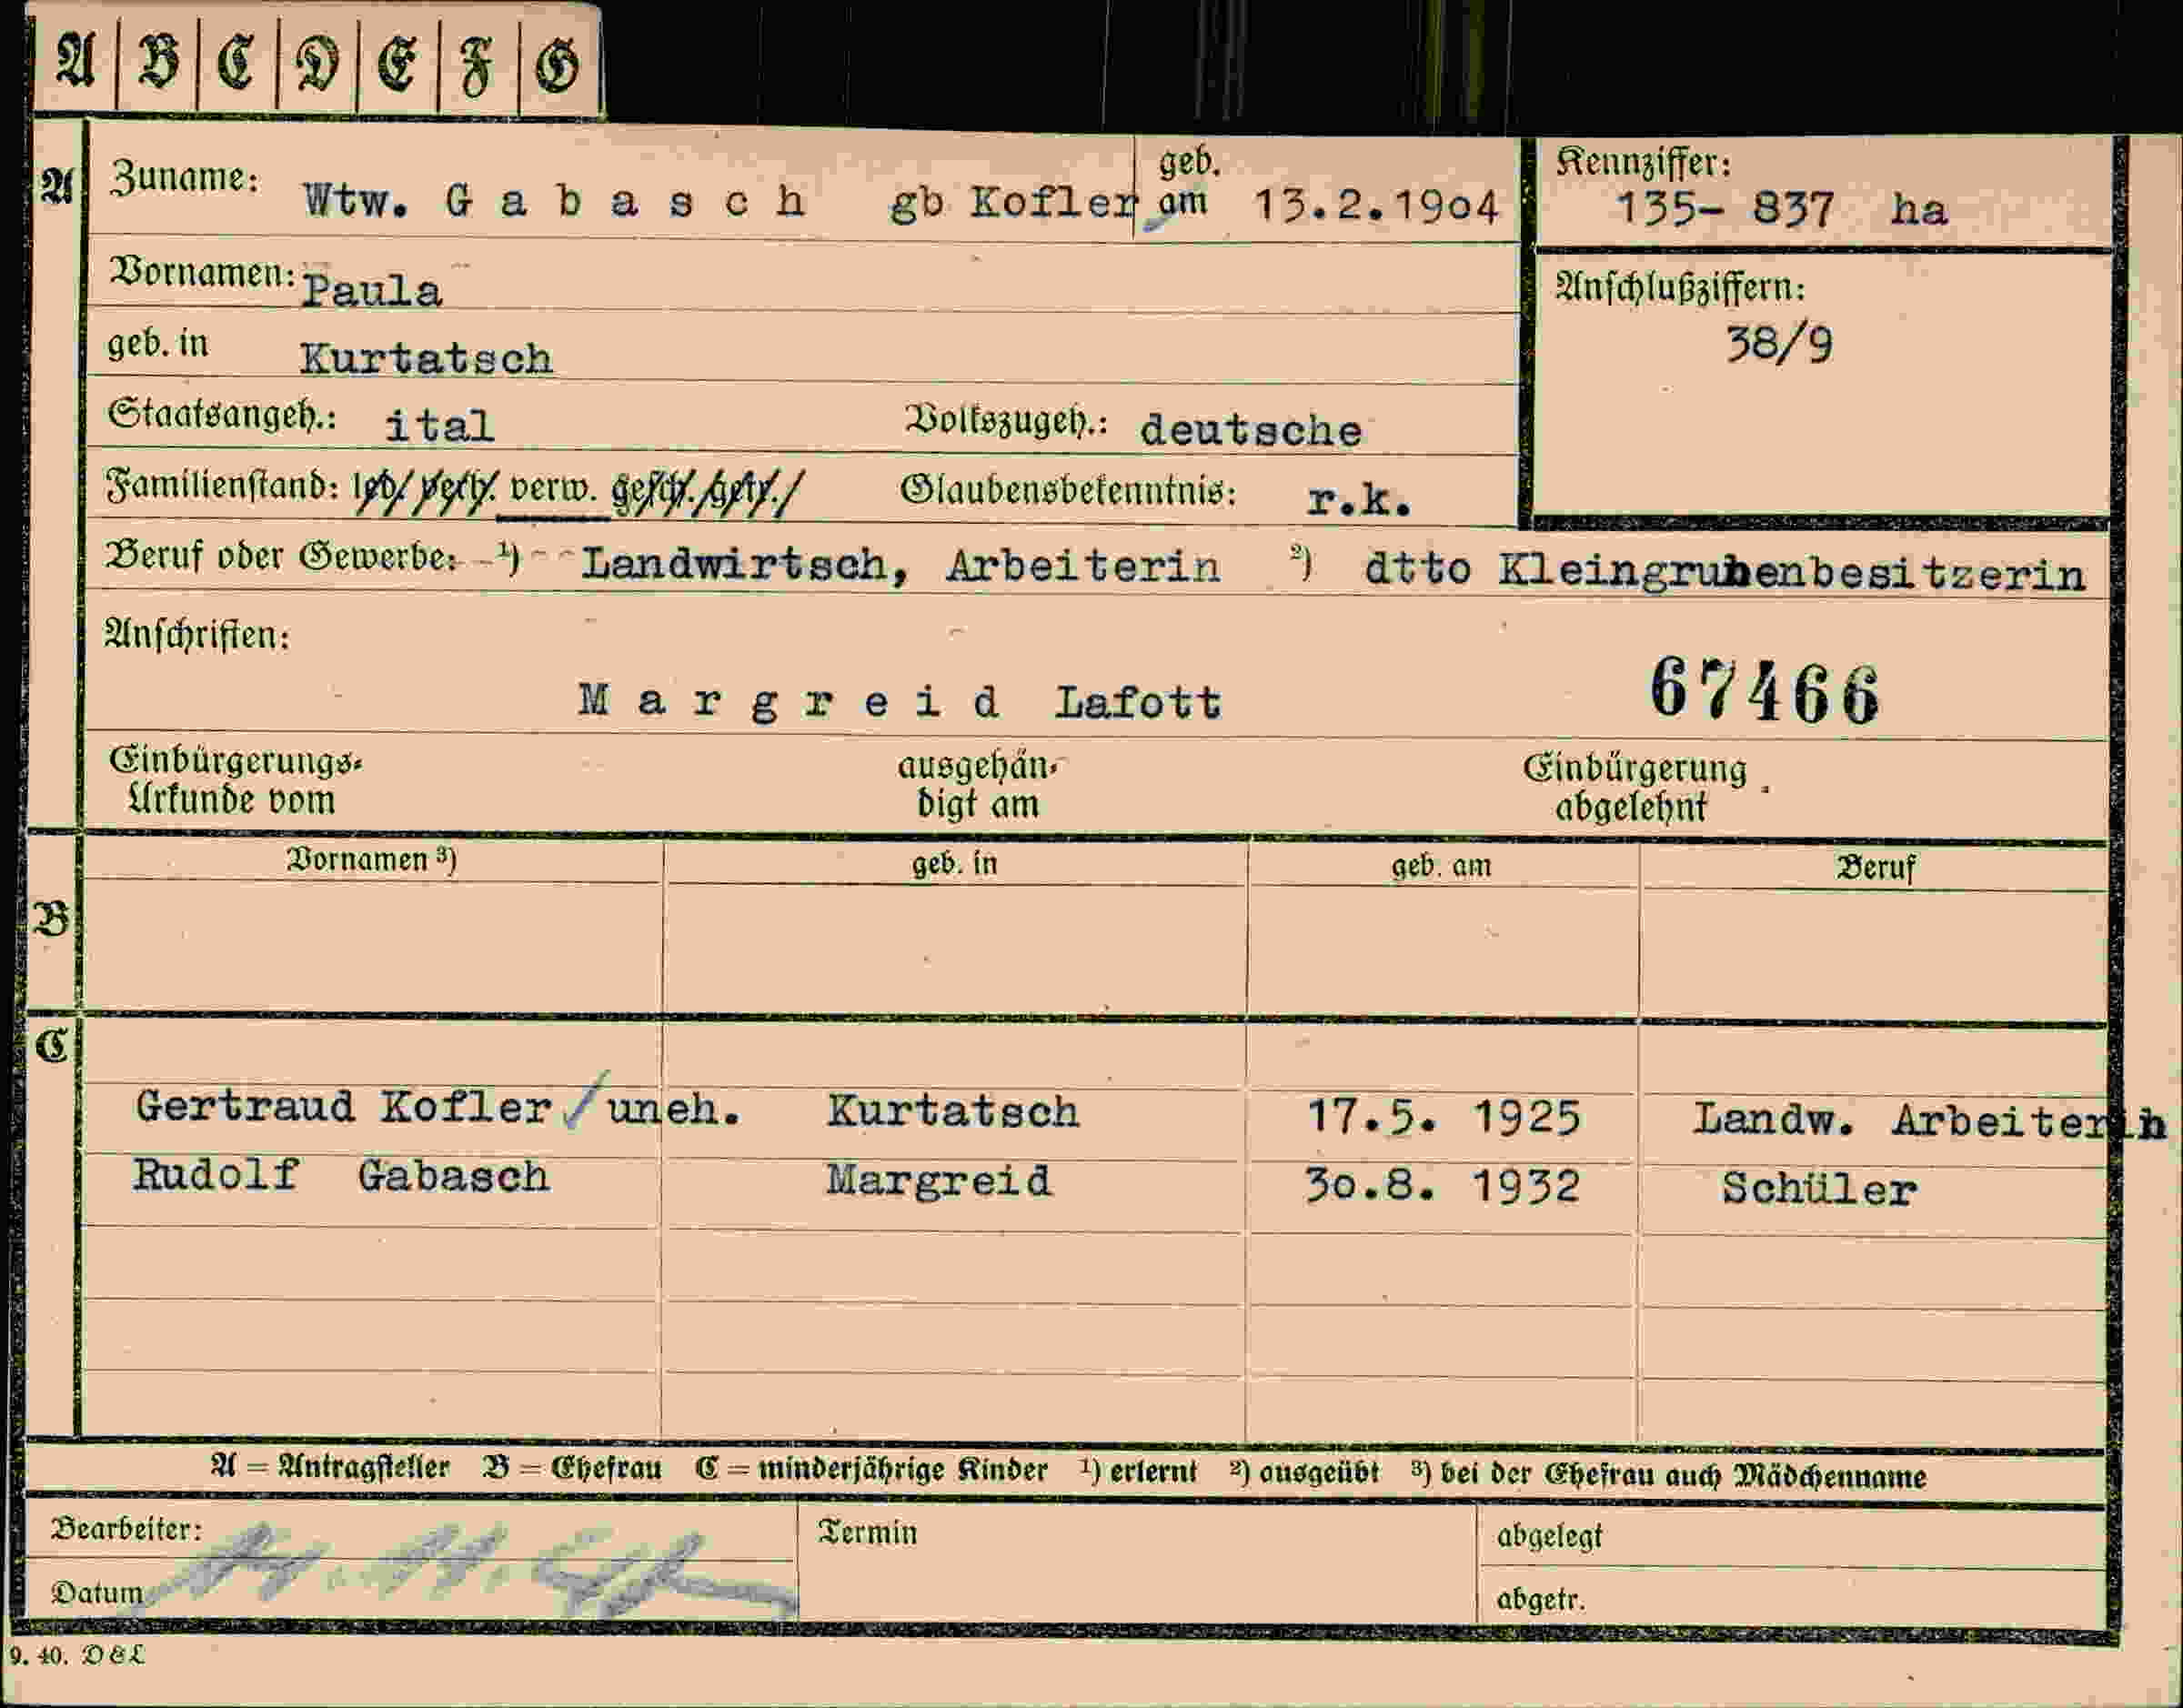 A B C D E F G
A Zuname: Wtw. G a b a s c h gb Kofler geb. am 13.2.1904
Kennziffer: 135- 837 ha
Vornamen: Paula
Anschlußziffern: 38/9
geb. in Kurtatsch
Staatsangeh.: ital Volkszugeh.: deutsche
Familienstand: led. verh. verw. gesch. getr. Glaubensbekenntnis: r.k.
Beruf oder Gewerbe: ¹) Landwirtsch, Arbeiterin ²) dtto Kleingruhenbesitzerin
Anschriften:
M a r g r e i d Lafott 67466
Einbürgerungs- ausgehän- Einbürgerung
Urkunde vom digt am abgelehnt
Vornamen ³) geb. in geb. am Beruf
B
C
Gertraud Kofler / uneh. Kurtatsch 17.5. 1925 Landw. Arbeiterin
Rudolf Gabasch Margreid 3o.8. 1932 Schüler
A = Antragsteller B = Ehefrau C = minderjährige Kinder ¹) erlernt ²) ausgeübt ³) bei der Ehefrau auch Mädchenname
Bearbeiter: Termin abgelegt
Datum abgetr.
9. 40. D & L